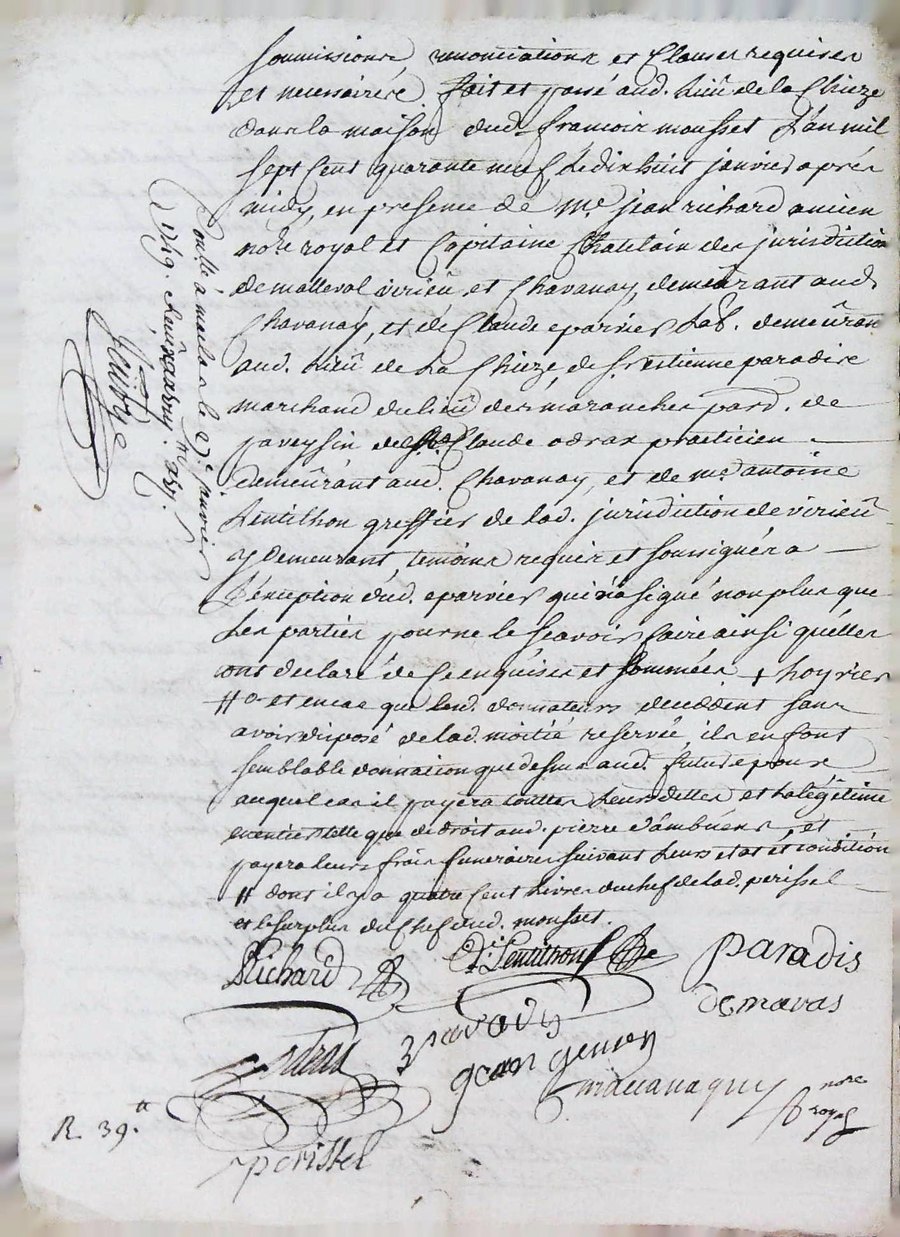 soumissions renonciations et Clauses requises
et necessaires. fait et passé aud. lieu de la Chieze
dans la maison dud. francois mousset L'an mil
sept Cent quarante neuf Le dix huit janvier aprés
midy, en presence de Me. jean richard ancien
nore royal et Capitaine Chatelain des jurisdiction
de malleval virieu et Chavanay, demeurant aud.
Chavanay, et de Claude eparvier Lab. demeuran
aud. Lieu de La Chieze, de sr. etienne paradis
marchand du lieu des maranches parr. de
paveyssin de Claude odras practicien
demeurant aud. Chavanay, et de me. antoine
Lentilhon greffier de lad. jurisdiction de virieu
y demeurant, temoins requis et soussignés a
L'exception dud. eparvier qui n'a signé non plus que
Les parties pour ne le scavoir faire ainsi quelles
ont declaré de ce enquises et sommées + hoyries
# et en cas que lesd. donnateurs decedent sans
avoir disposé de lad. moitié reservée, ils en font
semblable donnation que dessus aud. futur epoux
auquel cas il payera touttes Leurs dettes et La legitime
telle que de droit aud. pierre et
payera leurs frais funeraires suivant Leurs etat et condition
# dont il y a quatre Cent Livres du chef de lad. perissel
et le surplus du Chef dud. mousset.
Richard
A. Lentilhon
paradis
de maras
odras
paradis
jean
nore
royal
R. 39.tt
perissel
Conllé à le 27e janvier
1749. Reçu